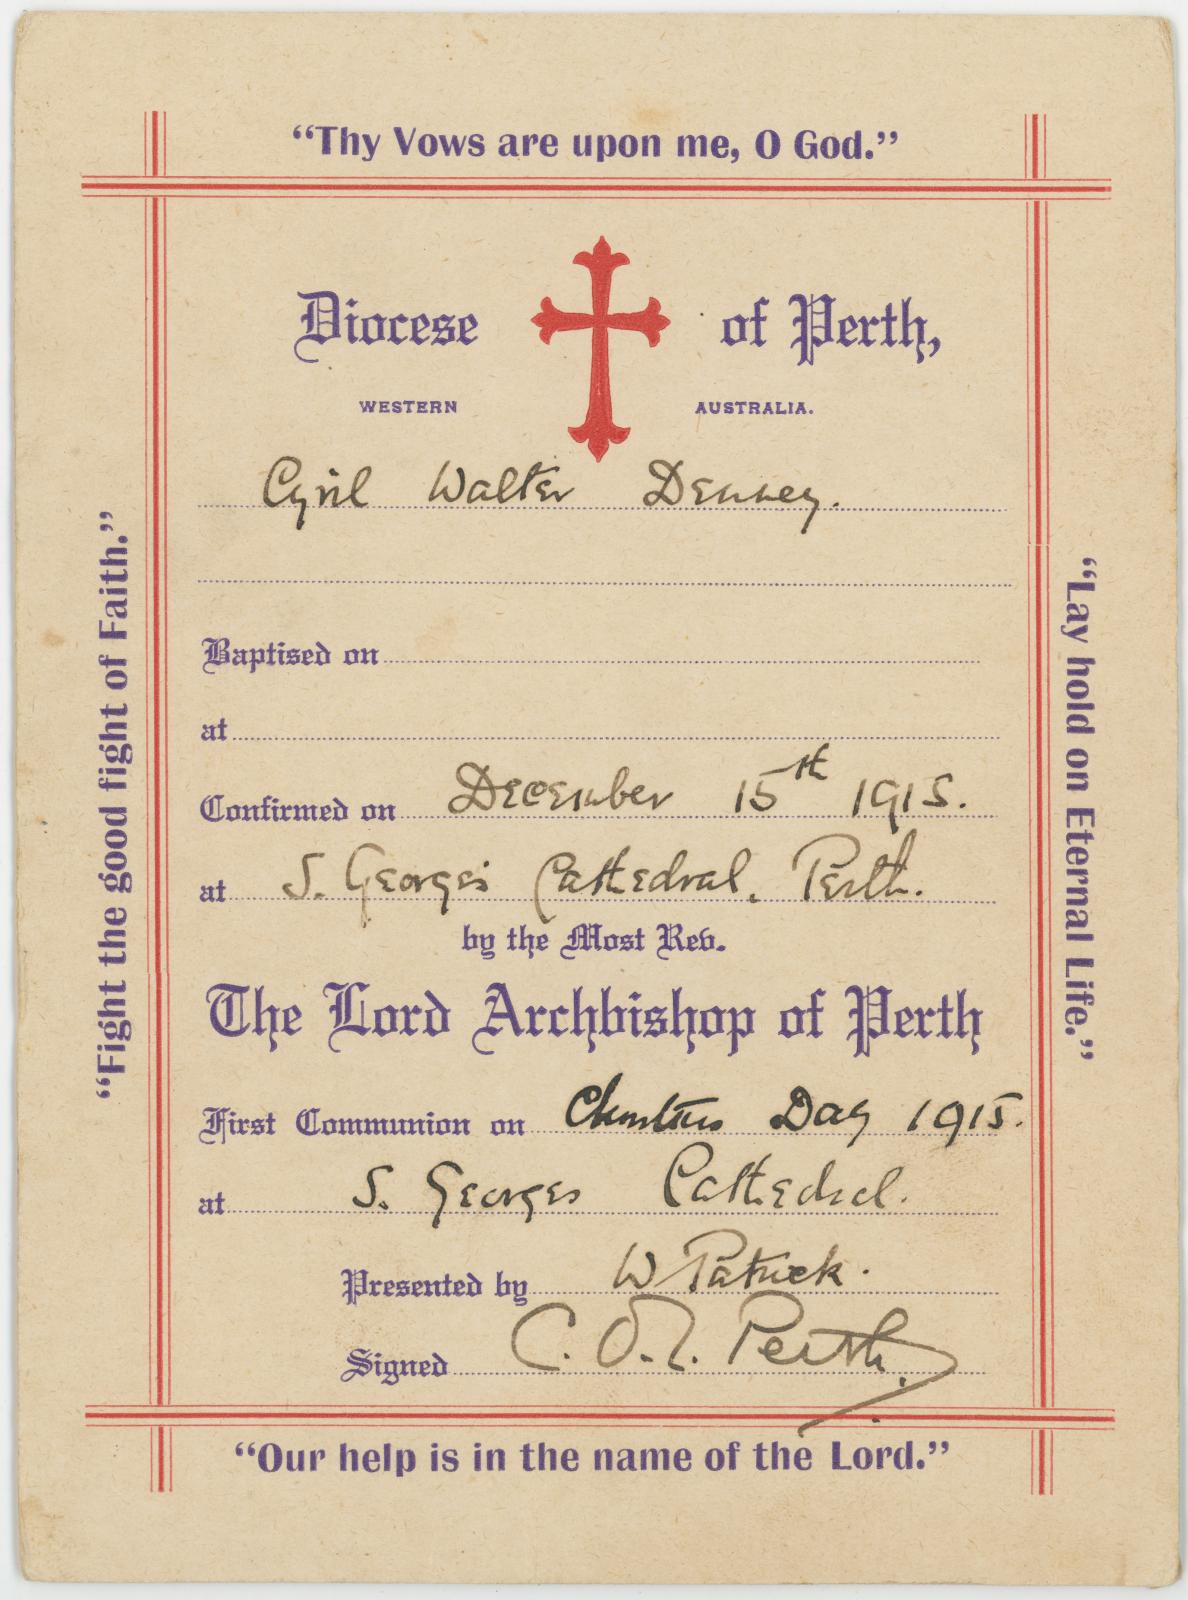 “Thy Vows are upon me, O God.”
Diocese of Perth,
WESTERN AUSTRALIA.
Cyril Walter Denney.
Baptised on
at
Confirmed on December 15th 1915.
at S. George's Cathedral, Perth.
by the Most Rev.
The Lord Archbishop of Perth
First Communion on Christmas Day 1915.
at S. Georges Cathedral.
Presented by W Patrick.
Signed C. O. L. Perth.
“Our help is in the name of the Lord.”
“Fight the good fight of Faith.”
“Lay hold on Eternal Life.”